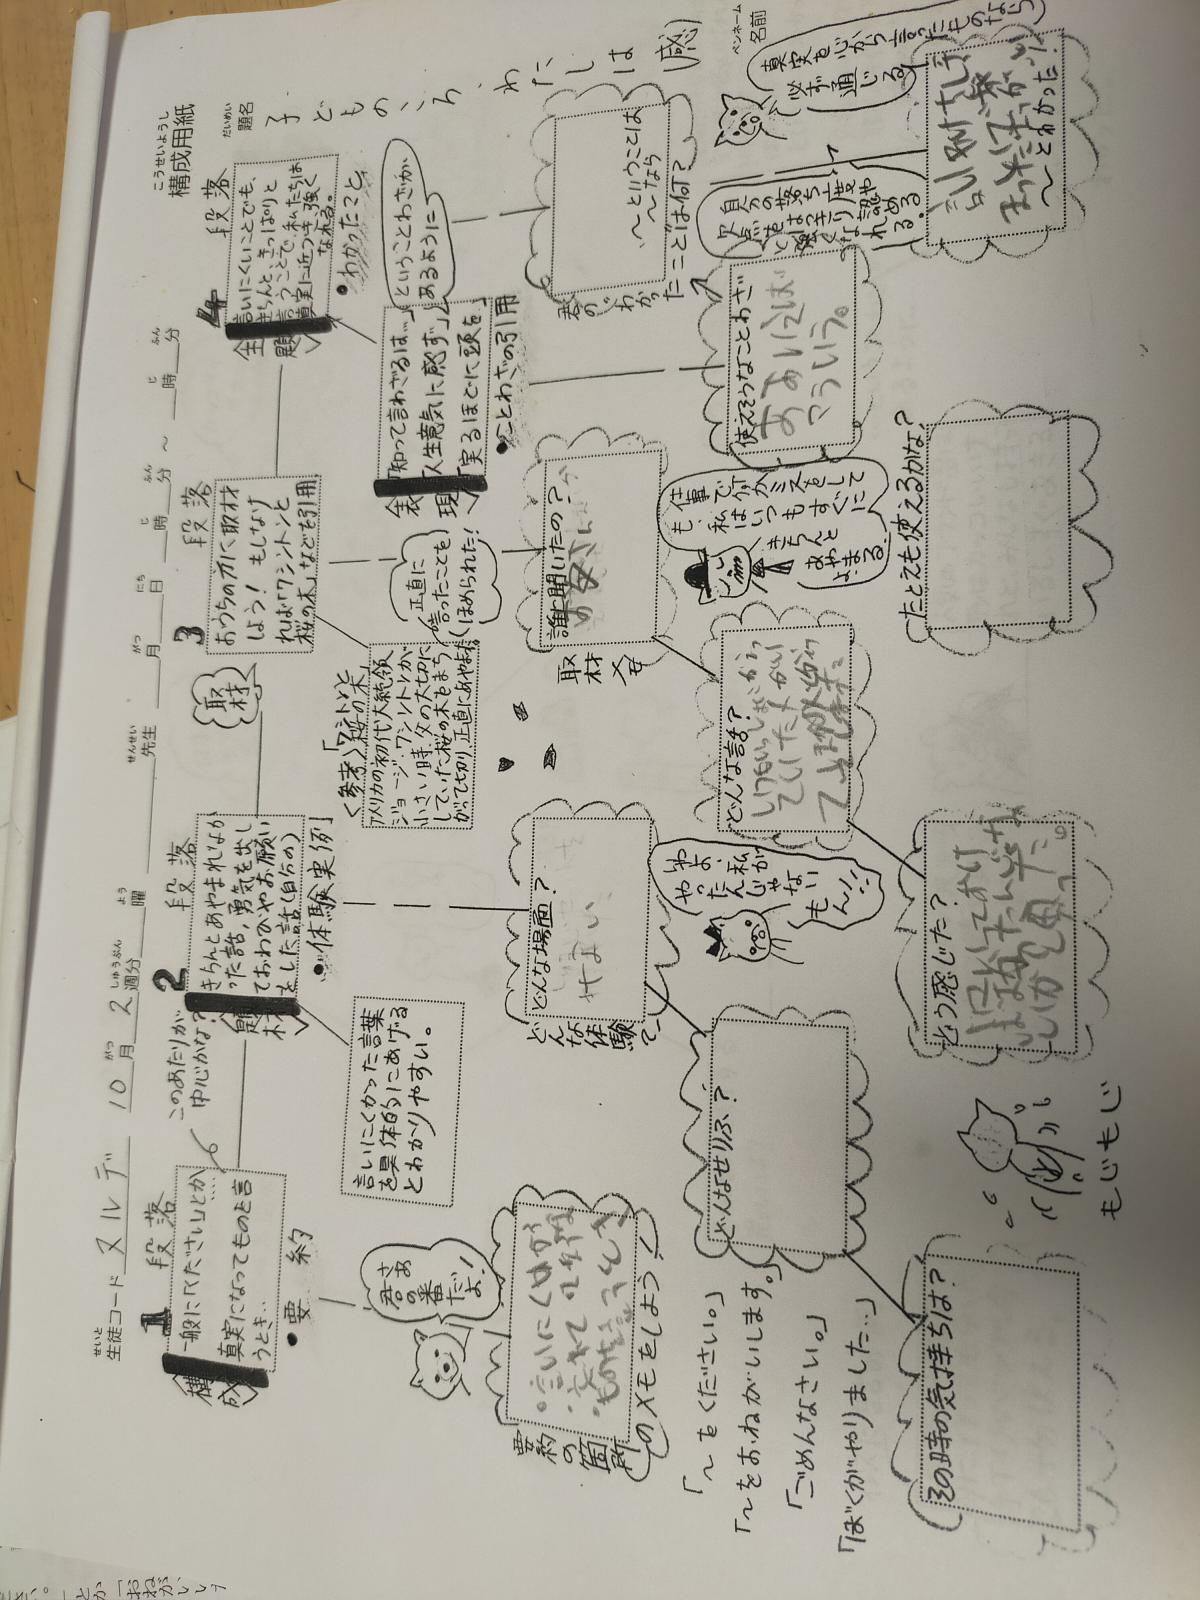 構成用紙
こうせいようし
題名
だいめい
子どものころ、わたしは(感)
ペンネーム
名前
生徒コード ヌルデ 10月 2週分 曜 先生 月 日 時 分 ～ 時 分
せいと
がつ
しゅうぶん
よう
せんせい
がつ
にち
じ
ふん
じ
ふん
1
段落
構成
一般に「ください」とか
真実になってものを言
うとき、
・要約
このあたりが
中心かな?
2
段落
題材
きちんとあやまれなか
った話、勇気を出し
ておわびやお願い
をした話(自分の)
・体験実例
取材
3
段落
おうちの方に取材
しよう! もしなけ
れば「ワシントンと
桜の木」などを引用
4
段落
主題
言いにくいことでも、
きちんと、きっぱりと
言うことで、私たちは
真実に近づき、強く
なれる。
・わかったこと
さあ
君の番
だよ!
言いにくかった言葉
を具体的にあげる
とわかりやすい。
<参考>「ワシントンと
桜の木」
アメリカの初代大統領
ジョージ・ワシントンが
小さい時、父の大切に
していた桜の木をまち
がって切り、正直にあやまった
正直に
言ったことを
ほめられた!
表現
「知って言わざるは…」
「人生意気に感ず」
「実るほどに頭を」
・ことわざの引用
ということわざが
あるように
要約の箇所
のメモをしよう
・言いにくい
どんな体験で
どんな場面?
取材 父母
誰に聞いたの?
お母さん
君の「わかった
ことは何?
～ということは
～なら
「～をください。」
「～をおねがいします。」
「ごめんなさい。」
「ぼくがやりました…」
どんなせりふ?
いやよ、
私が
やったんじゃない
もん!!
どんな話?
仕事で何かミスをして
も、私はいつもすぐに
きちんと
あやまる
よ。
使えそうなことわざ
ああいえば
こういう。
自分の落ち度や
欠点をはっきり認め
ると強くなれる。
真実を心から言ったものなら
必ず通じる
その時の気持ちは?
もじもじ
どう感じた?
たとえも使えるかな?
～とわかった!